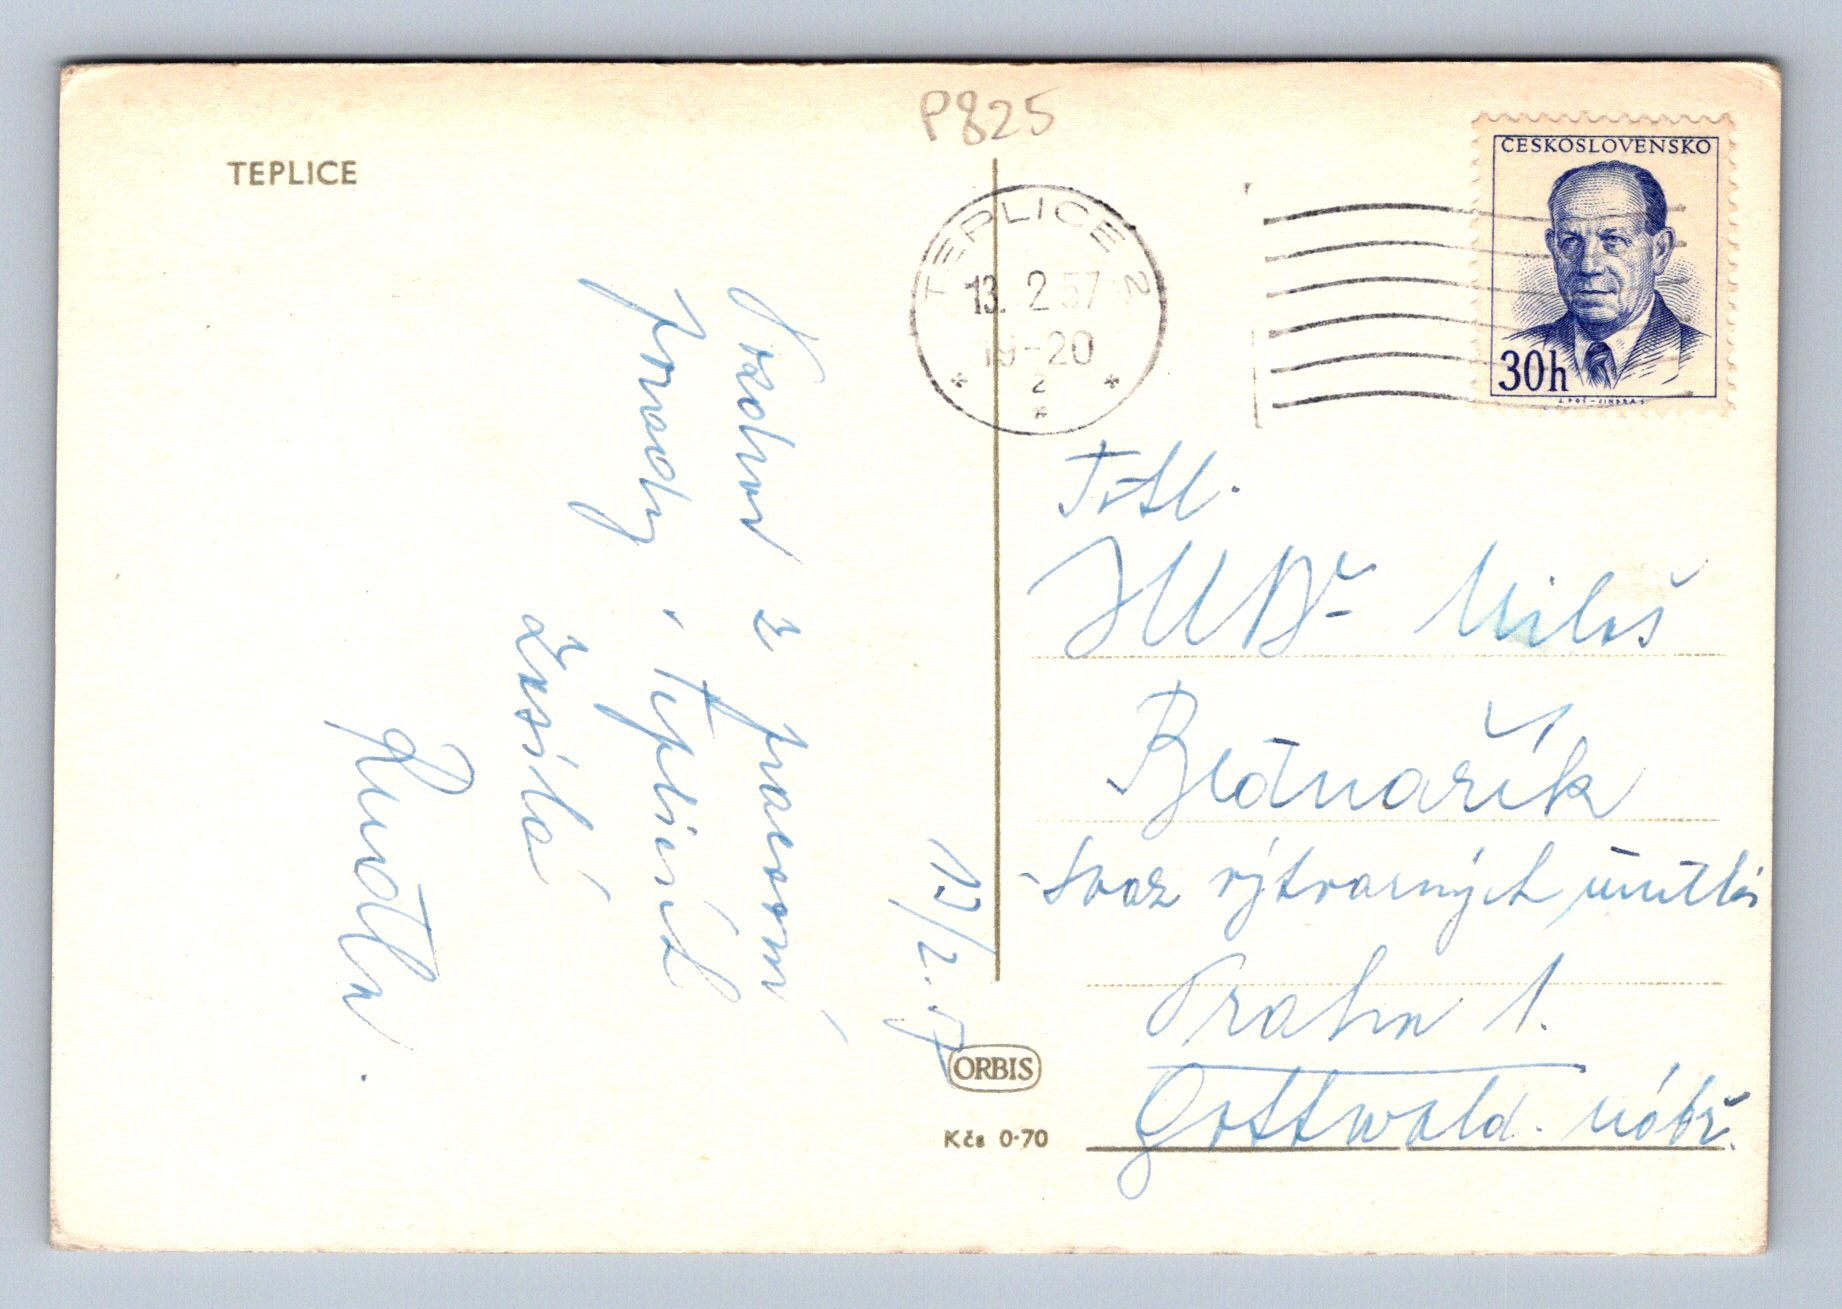 P825
TEPLICE
ČESKOSLOVENSKO
30h
J. POŠ - JINDRA S.
TEPLICE 2
13. 2 57
19-20
2
Pozdrav z pracovní
porady v Teplicích
zasílá
13/2. 57
Titl.
JUDr Miloš
Bednařík
Svaz výtvarných umělců
Praha 1.
Gottwald. nábř.
ORBIS
Kčs 0·70